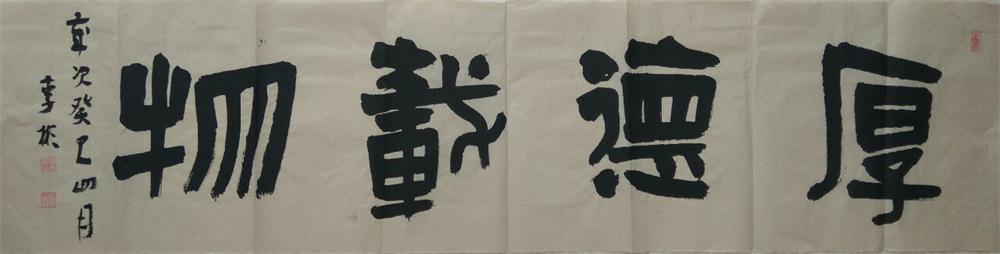 厚德載物
歲次癸巳四月
李彬